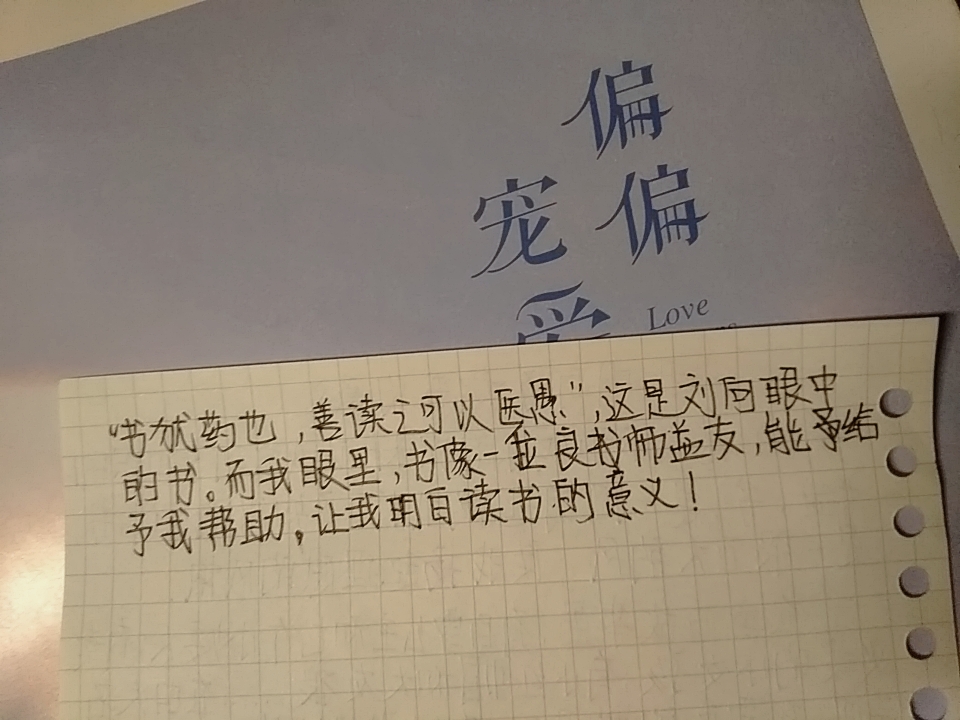 偏偏
宠爱
Love
“书犹药也，善读之可以医愚”，这是刘向眼中
的书。而我眼里，书像一位良师益友，能给
予我帮助，让我明白读书的意义！